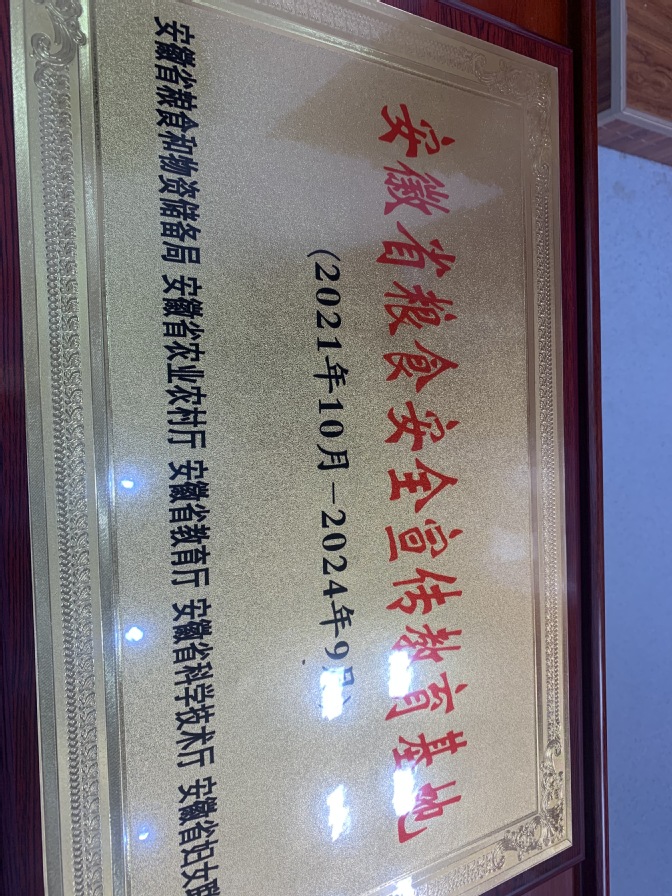 安徽省粮食安全宣传教育基地
(2021年10月-2024年9月)
安徽省粮食和物资储备局 安徽省农业农村厅 安徽省教育厅 安徽省科学技术厅 安徽省妇女联